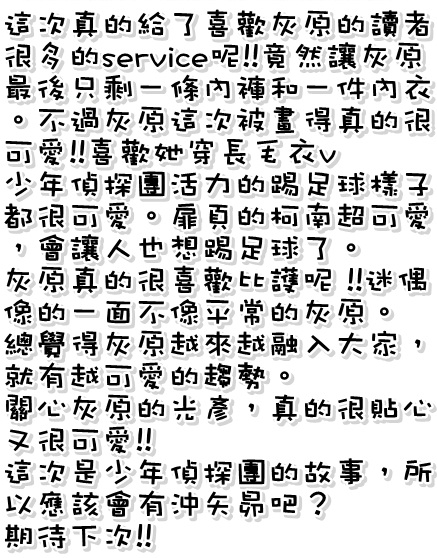 這次真的給了喜歡灰原的讀者
很多的service呢!!竟然讓灰原
最後只剩一條內褲和一件內衣
。不過灰原這次被畫得真的很
可愛!!喜歡她穿長毛衣v
少年偵探團活力的踢足球樣子
都很可愛。扉頁的柯南超可愛
,會讓人也想踢足球了。
灰原真的很喜歡比護呢 !!迷偶
像的一面不像平常的灰原。
總覺得灰原越來越融入大家,
就有越可愛的趨勢。
關心灰原的光彥,真的很貼心
又很可愛!!
這次是少年偵探團的故事,所
以應該會有沖矢昴吧?
期待下次!!